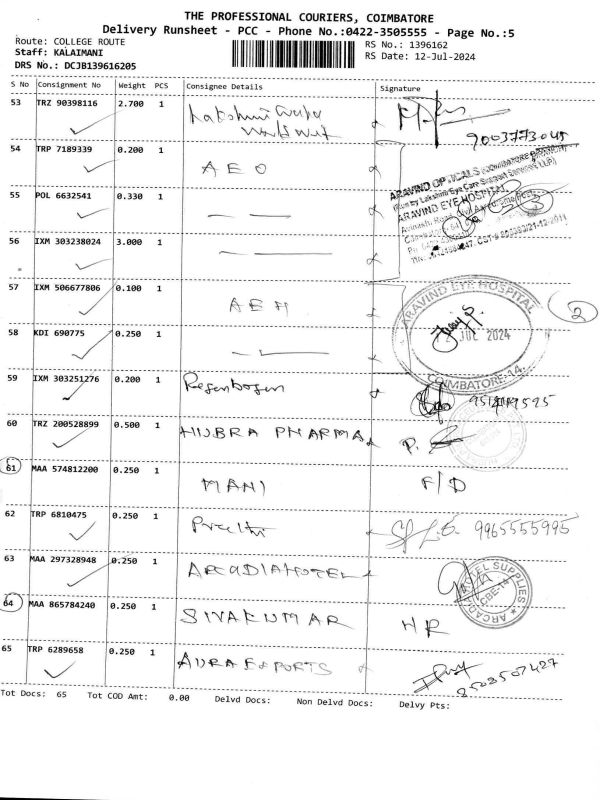 THE PROFESSIONAL COURIERS, COIMBATORE
Delivery Runsheet - PCC - Phone No.:0422-3505555 - Page No.:5
Route: COLLEGE ROUTE
Staff: KALAIMANI
DRS No.: DCJB139616205
RS No.: 1396162
RS Date: 12-Jul-2024
S No Consignment No Weight PCS Consignee Details Signature
53 TRZ 90398116 2.700 1 Lakshmi
9003773045
54 TRP 7189339 0.200 1 AEO
ARAVIND OPTICALS (COIMBATORE DIVISION)
(Run by Lakshmi Eye Care Support Services LLP)
ARAVIND EYE HOSPITAL,
55 POL 6632541 0.330 1 — —
Avinashi Road, Civil Aerodrome Post,
56 IXM 303238024 3.000 1 — —
57 IXM 506677806 0.100 1 AEH
ARAVIND EYE HOSPITAL
2
58 KDI 690775 0.250 1 — —
12 JUL 2024
COIMBATORE-14.
59 IXM 303251276 0.200 1 Regenbogen
60 TRZ 200528899 0.500 1 HUBRA PHARMA
61 MAA 574812200 0.250 1 MANI F/D
62 TRP 6810475 0.250 1 Preethi 9965555995
63 MAA 297328948 0.250 1 ARCADIA HOTEL
64 MAA 865784240 0.250 1 SIVAKUMAR HR
65 TRP 6289658 0.250 1 AURA EXPORTS
8508507427
Tot Docs: 65 Tot COD Amt: 0.00 Delvd Docs: Non Delvd Docs: Delvy Pts: